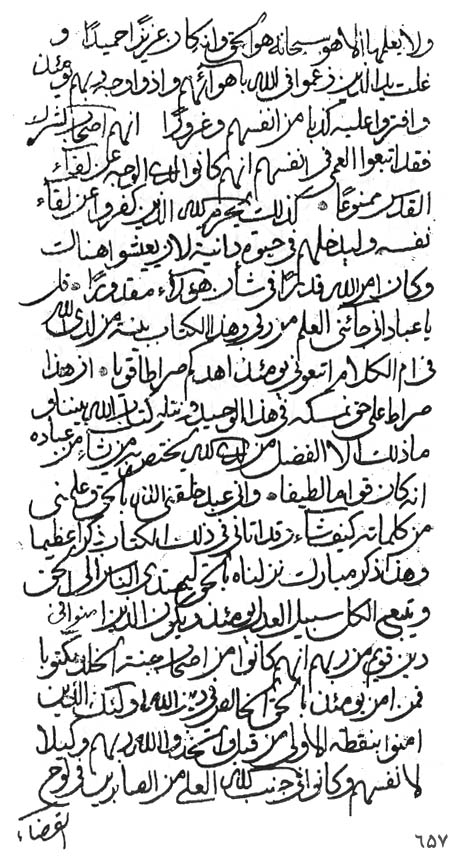 ولا يعلمها الا هو سبحانه هو الحق وانه كان عزيزا حميدا و
غلت يد الذين زعموا في الله باهوائهم واذ وادجه ربهم يومئذ
وافتروا عليه كذبا من انفسهم وغرورا انهم اصحاب الشرك
فقد اتبعوا العمى في انفسهم انهم كانوا لدى الوجه عن لقاء
القدس ممنوعا * كذلك يحرم الله الذين كفروا عن لقاء
نفسه وليدخلهم في حيوة دانية لان يعيشوا هنالك
وكان امر الله قدرا في شأن هؤلاء مقدورا * قل
يا عبادي جائني العلم من ربي وهذا الكتاب بينة من لدى الله
في ام الكلام اتبعوني يومئذ اهدكم صراطا قويا * ان هذا
صراط علي حق نمسكه في هذا الوحيد ونتله كتاب الله بيننا و
ما ذلك الا الفضل من الله يختص به من يشاء من عباده
انه كان قواما لطيفا * واني عبد خلقني الله بالحق وعلمني
من كلماته كيف شاء وقد اتاني في ذلك الكتاب ذكرا عظيما
وهذا ذكر مبارك نزلناه بالحق ليهتدى الناس الى الحق
ويتبع الكل سبيل العدل يومئذ ويكون الذين امنوا في
دين قويم من ربهم انهم كانوا من اصحاب جنة الخلد مكتوبا
فمن امن يومئذ بالحق الخالص في دين الله وكتاب الذين
امنوا بنقطة الاولى من قبل واتخذوا الله ربهم وكيلا
لانفسهم وكانوا في جنب الله العلي من الصابرين في لوح
القضاء
٦٥٧